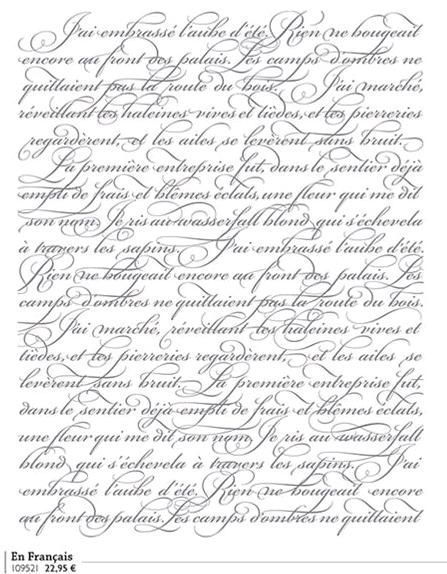 J'ai embrassé l'aube d'été. Rien ne bougeait
encore au front des palais. Les camps d'ombres ne
quittaient pas la route du bois. J'ai marché,
réveillant les haleines vives et tièdes, et les pierreries
regardèrent, et les ailes se levèrent sans bruit.
La première entreprise fut, dans le sentier déjà
empli de frais et blêmes éclats, une fleur qui me dit
son nom. Je ris au wasserfall blond qui s'échevela
à travers les sapins. J'ai embrassé l'aube d'été.
Rien ne bougeait encore au front des palais. Les
camps d'ombres ne quittaient pas la route du bois.
J'ai marché, réveillant les haleines vives et
tièdes, et les pierreries regardèrent, et les ailes se
levèrent sans bruit. La première entreprise fut,
dans le sentier déjà empli de frais et blêmes éclats,
une fleur qui me dit son nom. Je ris au wasserfall
blond qui s'échevela à travers les sapins. J'ai
embrassé l'aube d'été. Rien ne bougeait encore
au front des palais. Les camps d'ombres ne quittaient
En Français
109521 22,95 €